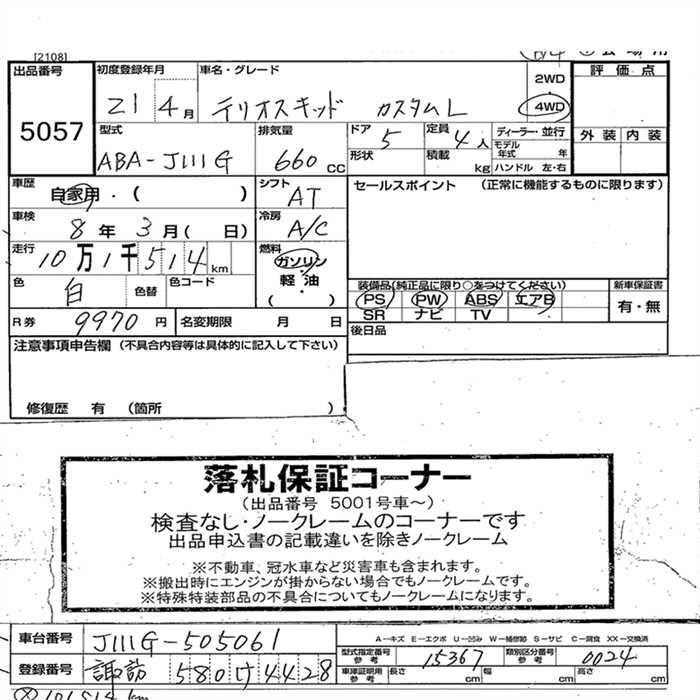 [2108]
出品番号 初度登録年月 車名・グレード 2WD 評価点
5057 21 4月 テリオスキッド カスタムL 4WD
外装 内装
型式 排気量 ドア 定員 ディーラー・並行
ABA-J111G 660 CC 5 4人 モデル年式 年
形状 積載 kg ハンドル 左・右
車歴 自家用・( ) シフト AT セールスポイント (正常に機能するものに限ります)
車検 8年 3月( 日) 冷房 A/C
走行 10万1千514km 燃料 ガソリン 軽油 ( )
色 白 色替 色コード
装備品(純正品に限り○をつけてください) 新車保証書
PS PW ABS エアB 有・無
SR ナビ TV
R券 9970円 名変期限 月 日 後日品
注意事項申告欄 (不具合内容等は具体的に記入して下さい)
修復歴 有 (箇所 )
落札保証コーナー
(出品番号 5001号車~)
検査なし・ノークレームのコーナーです
出品申込書の記載違いを除きノークレーム
※不動車、冠水車など災害車も含まれます。
※搬出時にエンジンが掛からない場合でもノークレームです。
※特殊特装部品の不具合についてもノークレームになります。
車台番号 J111G-505061 A-キズ E-エクボ U-凹み W-補修跡 S-サビ C-腐食 XX-交換済
型式指定番号 参考 15367 類別区分番号 参考 0024
登録番号 諏訪 580 け 4428 車庫証明用 参考 長さ cm 幅 cm 高さ cm
101514 km